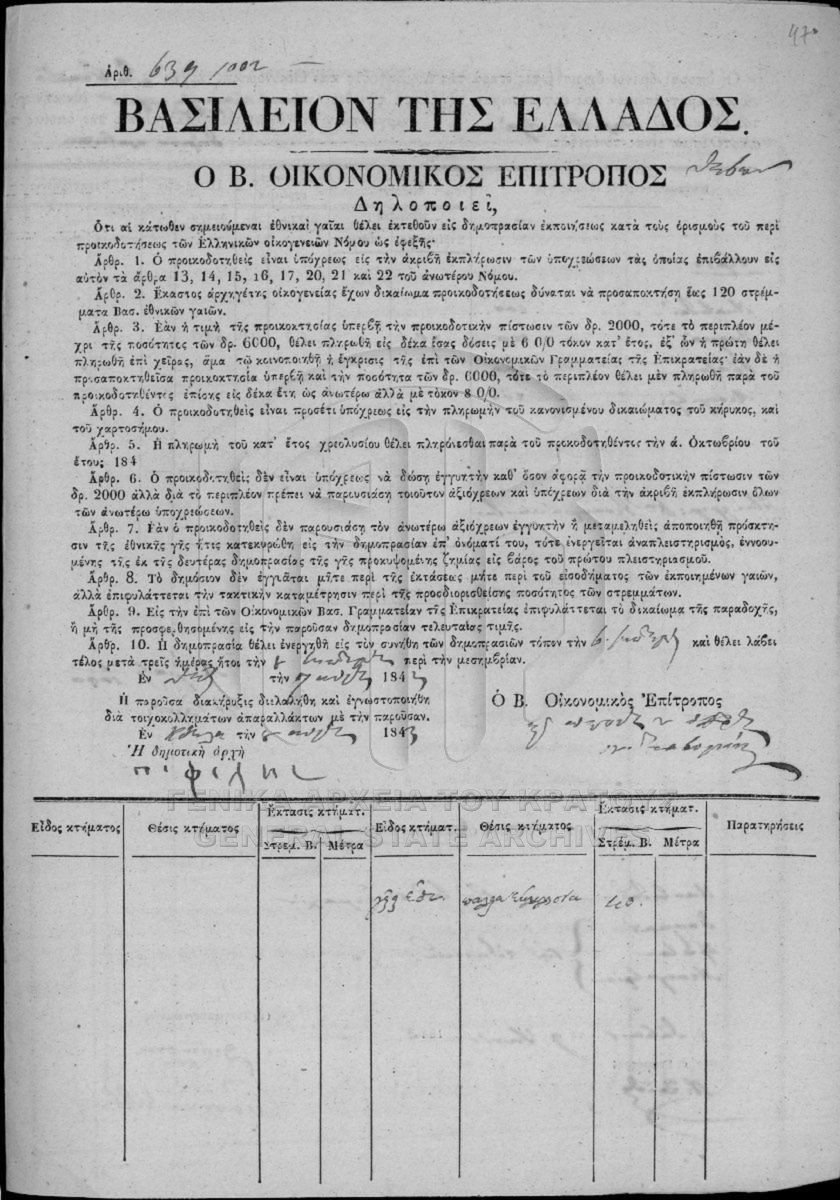 47
Ἀριθ. 639 1002
ΒΑΣΙΛΕΙΟΝ ΤΗΣ ΕΛΛΑΔΟΣ.
Ο Β. ΟΙΚΟΝΟΜΙΚΟΣ ΕΠΙΤΡΟΠΟΣ
Δηλοποιεῖ,
Ὅτι αἱ κάτωθεν σημειούμεναι ἐθνικαὶ γαῖαι θέλει ἐκτεθοῦν εἰς δημοπρασίαν ἐκποιήσεως κατὰ τοὺς ὁρισμοὺς τοῦ περὶ
προικοδοτήσεως τῶν Ἑλληνικῶν οἰκογενειῶν Νόμου ὡς ἐφεξῆς·
Ἄρθρ. 1. Ὁ προικοδοτηθεὶς εἶναι ὑπόχρεως εἰς τὴν ἀκριβῆ ἐκπλήρωσιν τῶν ὑποχρεώσεων τὰς ὁποίας ἐπιβάλλουν εἰς
αὐτὸν τὰ ἄρθρα 13, 14, 15, 16, 17, 20, 21 καὶ 22 τοῦ ἀνωτέρου Νόμου.
Ἄρθρ. 2. Ἕκαστος ἀρχηγέτης οἰκογενείας ἔχων δικαίωμα προικοδοτήσεως δύναται νὰ προσαποκτήσῃ ἕως 120 στρέμ-
ματα Βασ. ἐθνικῶν γαιῶν.
Ἄρθρ. 3. Ἐὰν ἡ τιμὴ τῆς προικοκτησίας ὑπερβῇ τὴν προικοδοτικὴν πίστωσιν τῶν δρ. 2000, τότε τὸ περιπλέον μέ-
χρι τῆς ποσότητος τῶν δρ. 6000, θέλει πληρωθῆ εἰς δέκα ἴσας δόσεις μὲ 6 0/0 τόκον κατ' ἔτος, ἐξ' ὧν ἡ πρώτη θέλει
πληρωθῆ ἐπὶ χεῖρας, ἅμα τῷ κοινοποιηθῇ ἡ ἔγκρισις τῆς ἐπὶ τῶν Οἰκονομικῶν Γραμματείας τῆς Ἐπικρατείας· ἐὰν δὲ ἡ
προσαποκτηθεῖσα προικοκτησία ὑπερβῇ καὶ τὴν ποσότητα τῶν δρ. 6000, τότε τὸ περιπλέον θέλει μὲν πληρωθῆ παρὰ τοῦ
προικοδοτηθέντος ἐπίσης εἰς δέκα ἔτη ὡς ἀνωτέρω ἀλλὰ μὲ τόκον 8 0/0.
Ἄρθρ. 4. Ὁ προικοδοτηθεὶς εἶναι προσέτι ὑπόχρεως εἰς τὴν πληρωμὴν τοῦ κανονισμένου δικαιώματος τοῦ κήρυκος, καὶ
τοῦ χαρτοσήμου.
Ἄρθρ. 5. Ἡ πληρωμὴ τοῦ κατ' ἔτος χρεολυσίου θέλει πληρόνεσθαι παρὰ τοῦ προκοδοτηθέντος τὴν ά. Ὀκτωβρίου τοῦ
ἔτους 184
Ἄρθρ. 6. Ὁ προικοδοτηθεὶς δὲν εἶναι ὑπόχρεως νὰ δώσῃ ἐγγυητὴν καθ' ὅσον ἀφορᾷ τὴν προικοδοτικὴν πίστωσιν τῶν
δρ. 2000 ἀλλὰ διὰ τὸ περιπλέον πρέπει νὰ παρουσιάσῃ τοιοῦτον ἀξιόχρεων καὶ ὑπόχρεων διὰ τὴν ἀκριβῆ ἐκπλήρωσιν ὅλων
τῶν ἀνωτέρω ὑποχρεώσεων.
Ἄρθρ. 7. Ἐὰν ὁ προικοδοτηθεὶς δὲν παρουσιάσῃ τὸν ἀνωτέρω ἀξιόχρεων ἐγγυητὴν ἢ μεταμεληθεὶς ἀποποιηθῇ πρόσκτη-
σιν τῆς ἐθνικῆς γῆς ἥτις κατεκυρώθη εἰς τὴν δημοπρασίαν ἐπ' ὀνόματί του, τότε ἐνεργεῖται ἀναπλειστηριασμὸς, ἐννοου-
μένης τῆς ἐκ τῆς δευτέρας δημοπρασίας τῆς γῆς προκυψομένης ζημίας εἰς βάρος τοῦ πρώτου πλειστηριασμοῦ.
Ἄρθρ. 8. Τὸ δημόσιον δὲν ἐγγυᾶται μήτε περὶ τῆς ἐκτάσεως μήτε περὶ τοῦ εἰσοδήματος τῶν ἐκποιημένων γαιῶν,
ἀλλὰ ἐπιφυλάττεται τὴν τακτικὴν καταμέτρησιν περὶ τῆς προσδιορισθείσης ποσότητος τῶν στρεμμάτων.
Ἄρθρ. 9. Εἰς τὴν ἐπὶ τῶν Οἰκονομικῶν Βασ. Γραμματείαν τῆς Ἐπικρατείας ἐπιφυλάττεται τὸ δικαίωμα τῆς παραδοχῆς,
ἢ μὴ τῆς προσφερθησομένης εἰς τὴν παροῦσαν δημοπρασίαν τελευταίας τιμῆς.
Ἄρθρ. 10. Ἡ δημοπρασία θέλει ἐνεργηθῆ εἰς τὸν συνήθη τῶν δημοπρασιῶν τόπον τὴν καὶ θέλει λάβει
τέλος μετὰ τρεῖς ἡμέρας ἤτοι τὴν περὶ τὴν μεσημβρίαν.
Ἐν τὴν 184
Ἡ παροῦσα διακήρυξις διελαλήθη καὶ ἐγνωστοποιήθη
διὰ τοιχοκολλημάτων ἀπαραλλάκτων μὲ τὴν παροῦσαν.
Ὁ Β. Οἰκονομικὸς Ἐπίτροπος
Ἐν τὴν 1843
Ἡ δημοτικὴ ἀρχὴ
ΓΕΝΙΚΑ ΑΡΧΕΙΑ ΤΟΥ ΚΡΑΤΟΥΣ
GENERAL STATE ARCHIVES
Εἶδος κτήματος Θέσις κτήματος Ἔκτασις κτήματ. Εἶδος κτήματ. Θέσις κτήματος Ἔκτασις κτήματ. Παρατηρήσεις
Στρέμ. Β. Μέτρα Στρέμ. Β. Μέτρα